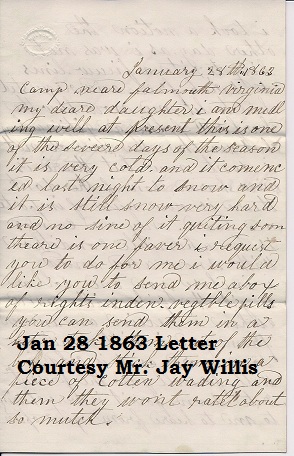 January 28th, 1863
Camp neare falmouth virginia
my deare daughter i am mid
ling well at present this is one
of the seveere days of the season
it is very cold and it cominc
ed last night to snow and
it is still snow very hard
and no sine of it quiting som
theare is one faver i request
you to do for me i would
like you to send me a box
of rights inden vegtble pills
you can send them in a
of the
Jan 28 1863 Letter
Courtesy Mr. Jay Willis
piece of Cotten wading and
them they wont rattl about
so mutch.